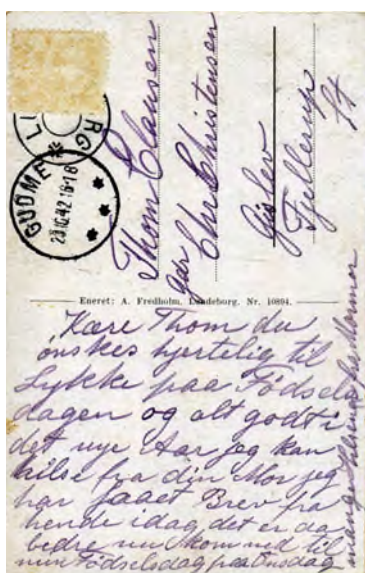 L RG
GUDME
23.10.42 16-18
Thom Clausen
Chr Christensen
Gislev
Fjellerup
St
Eneret: A. Fredholm, Lundeborg. Nr. 10894.
Kære Thom du
ønskes hjertelig til
Lykke paa Fødsels
dagen og alt godt i
det nye Aar jeg kan
hilse fra din Mor jeg
har faaet Brev fra
hende idag det er da
bedre nu kom ned til
min Fødselsdag paa Onsdag
mange Hilsner fra Mormor